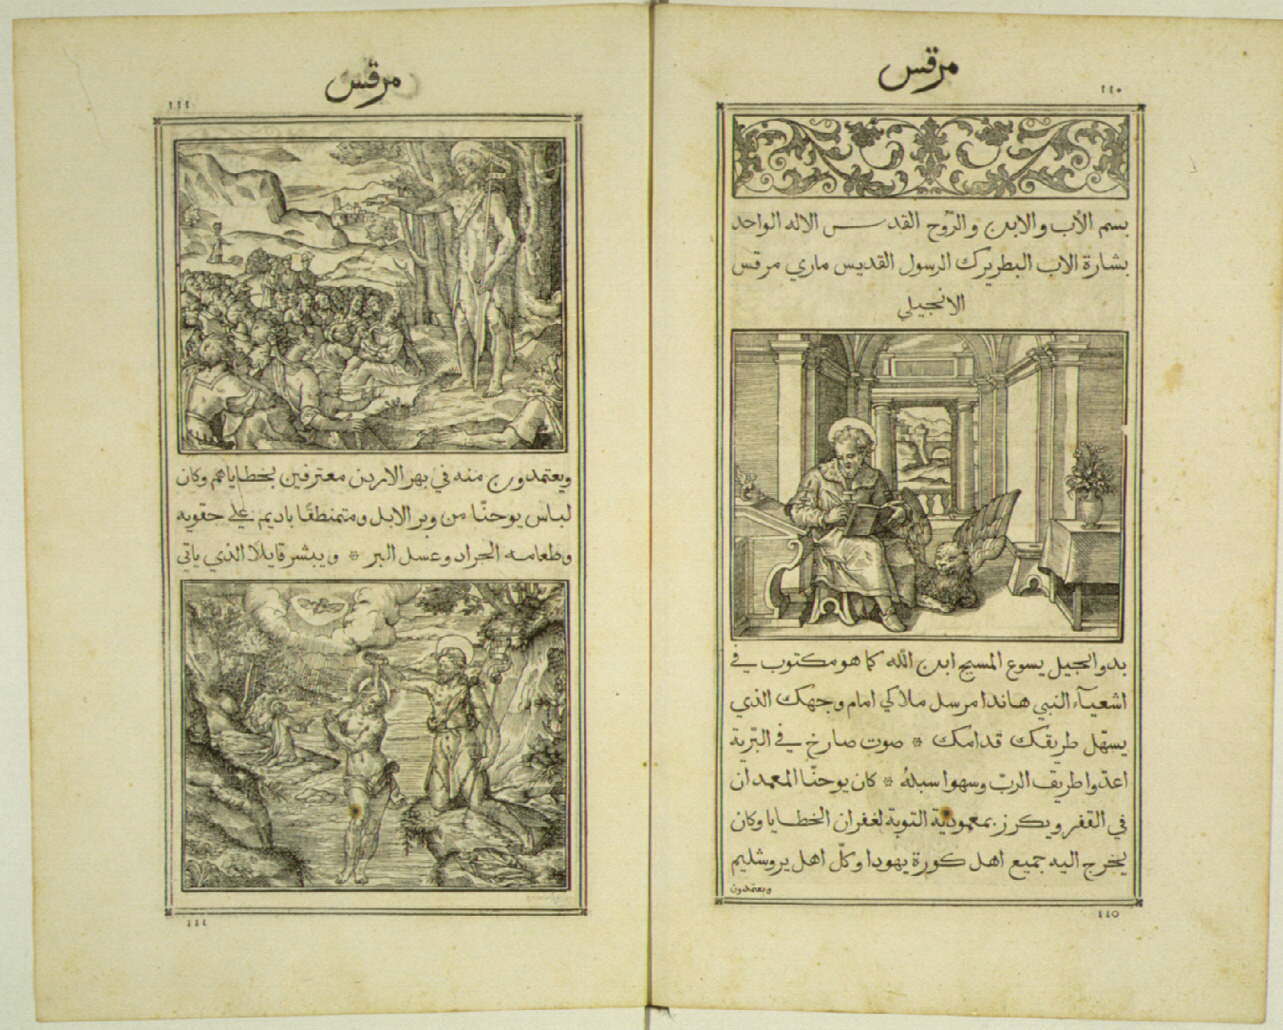 مرقس
١١٠
بسم الأب والابن والرّوح القدس الاله الواحد
بشارة الاب البطريرك الرسول القديس ماري مرقس
الانجيلي
بدو انجيل يسوع المسيح ابن اللّه كما هو مكتوب في
اشعيآء النبي هاندا مرسل ملاكي امام وجهك الذي
يسهّل طريقك قدامك ۞ صوت صارخ في البّرية
اعدّوا طريق الربّ وسهوا سبلهُ ۞ كان يوحنّا المعمدان
في القفر ويكرز بمعمودية التوبة لغفران الخطايا وكان
يخرج اليه جميع اهل كورة يهودا وكلّ اهل يروشليم
ويعتمدون
١١٠
مرقس
١١١
ويعتمدون منه في نهر الاردن معترفين بخطاياهم وكان
لباس يوحنّا من وبر الابل ومتمنطقًا باديم علي حقويه
وطعامه الجراد وعسل البر ۞ ويبشر قايلًا الذي ياتي
١١١